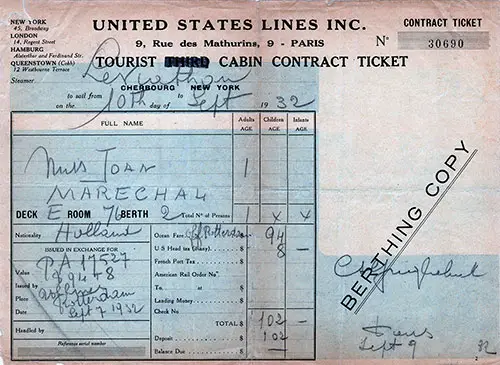 NEW YORK
45, Broadway
LONDON
14, Regent Street
HAMBURG
Alsterthor and Ferdinand Str.
QUEENSTOWN (Cobh)
12 Westbourne Terrace
UNITED STATES LINES INC.
9, Rue des Mathurins, 9 - PARIS
CONTRACT TICKET
N° 30690
TOURIST THIRD CABIN CONTRACT TICKET
Steamer Leviathan
to sail from CHERBOURG to NEW YORK
on the 10th day of Sept 1932
FULL NAME
Adults AGE. Children AGE. Infants AGE.
Miss Joan 1
MARECHAL
DECK E ROOM 76 BERTH 2 Total No of Persons 1 x x
Nationality Holland
Ocean Fare Rotterdam 94
U.S Head tax (if any) 8 —
French Port Tax
American Rail Order No.
To at
Landing Money
Check No
TOTAL $ 102 —
Deposit 102
Balance Due
ISSUED IN EXCHANGE FOR
PA 17527
Value $ 94 - 8
Issued by
Place Rotterdam
Date Sept 7 1932
Handled by
Reference serial number
BERTHING COPY
Paris
Sept 9 32